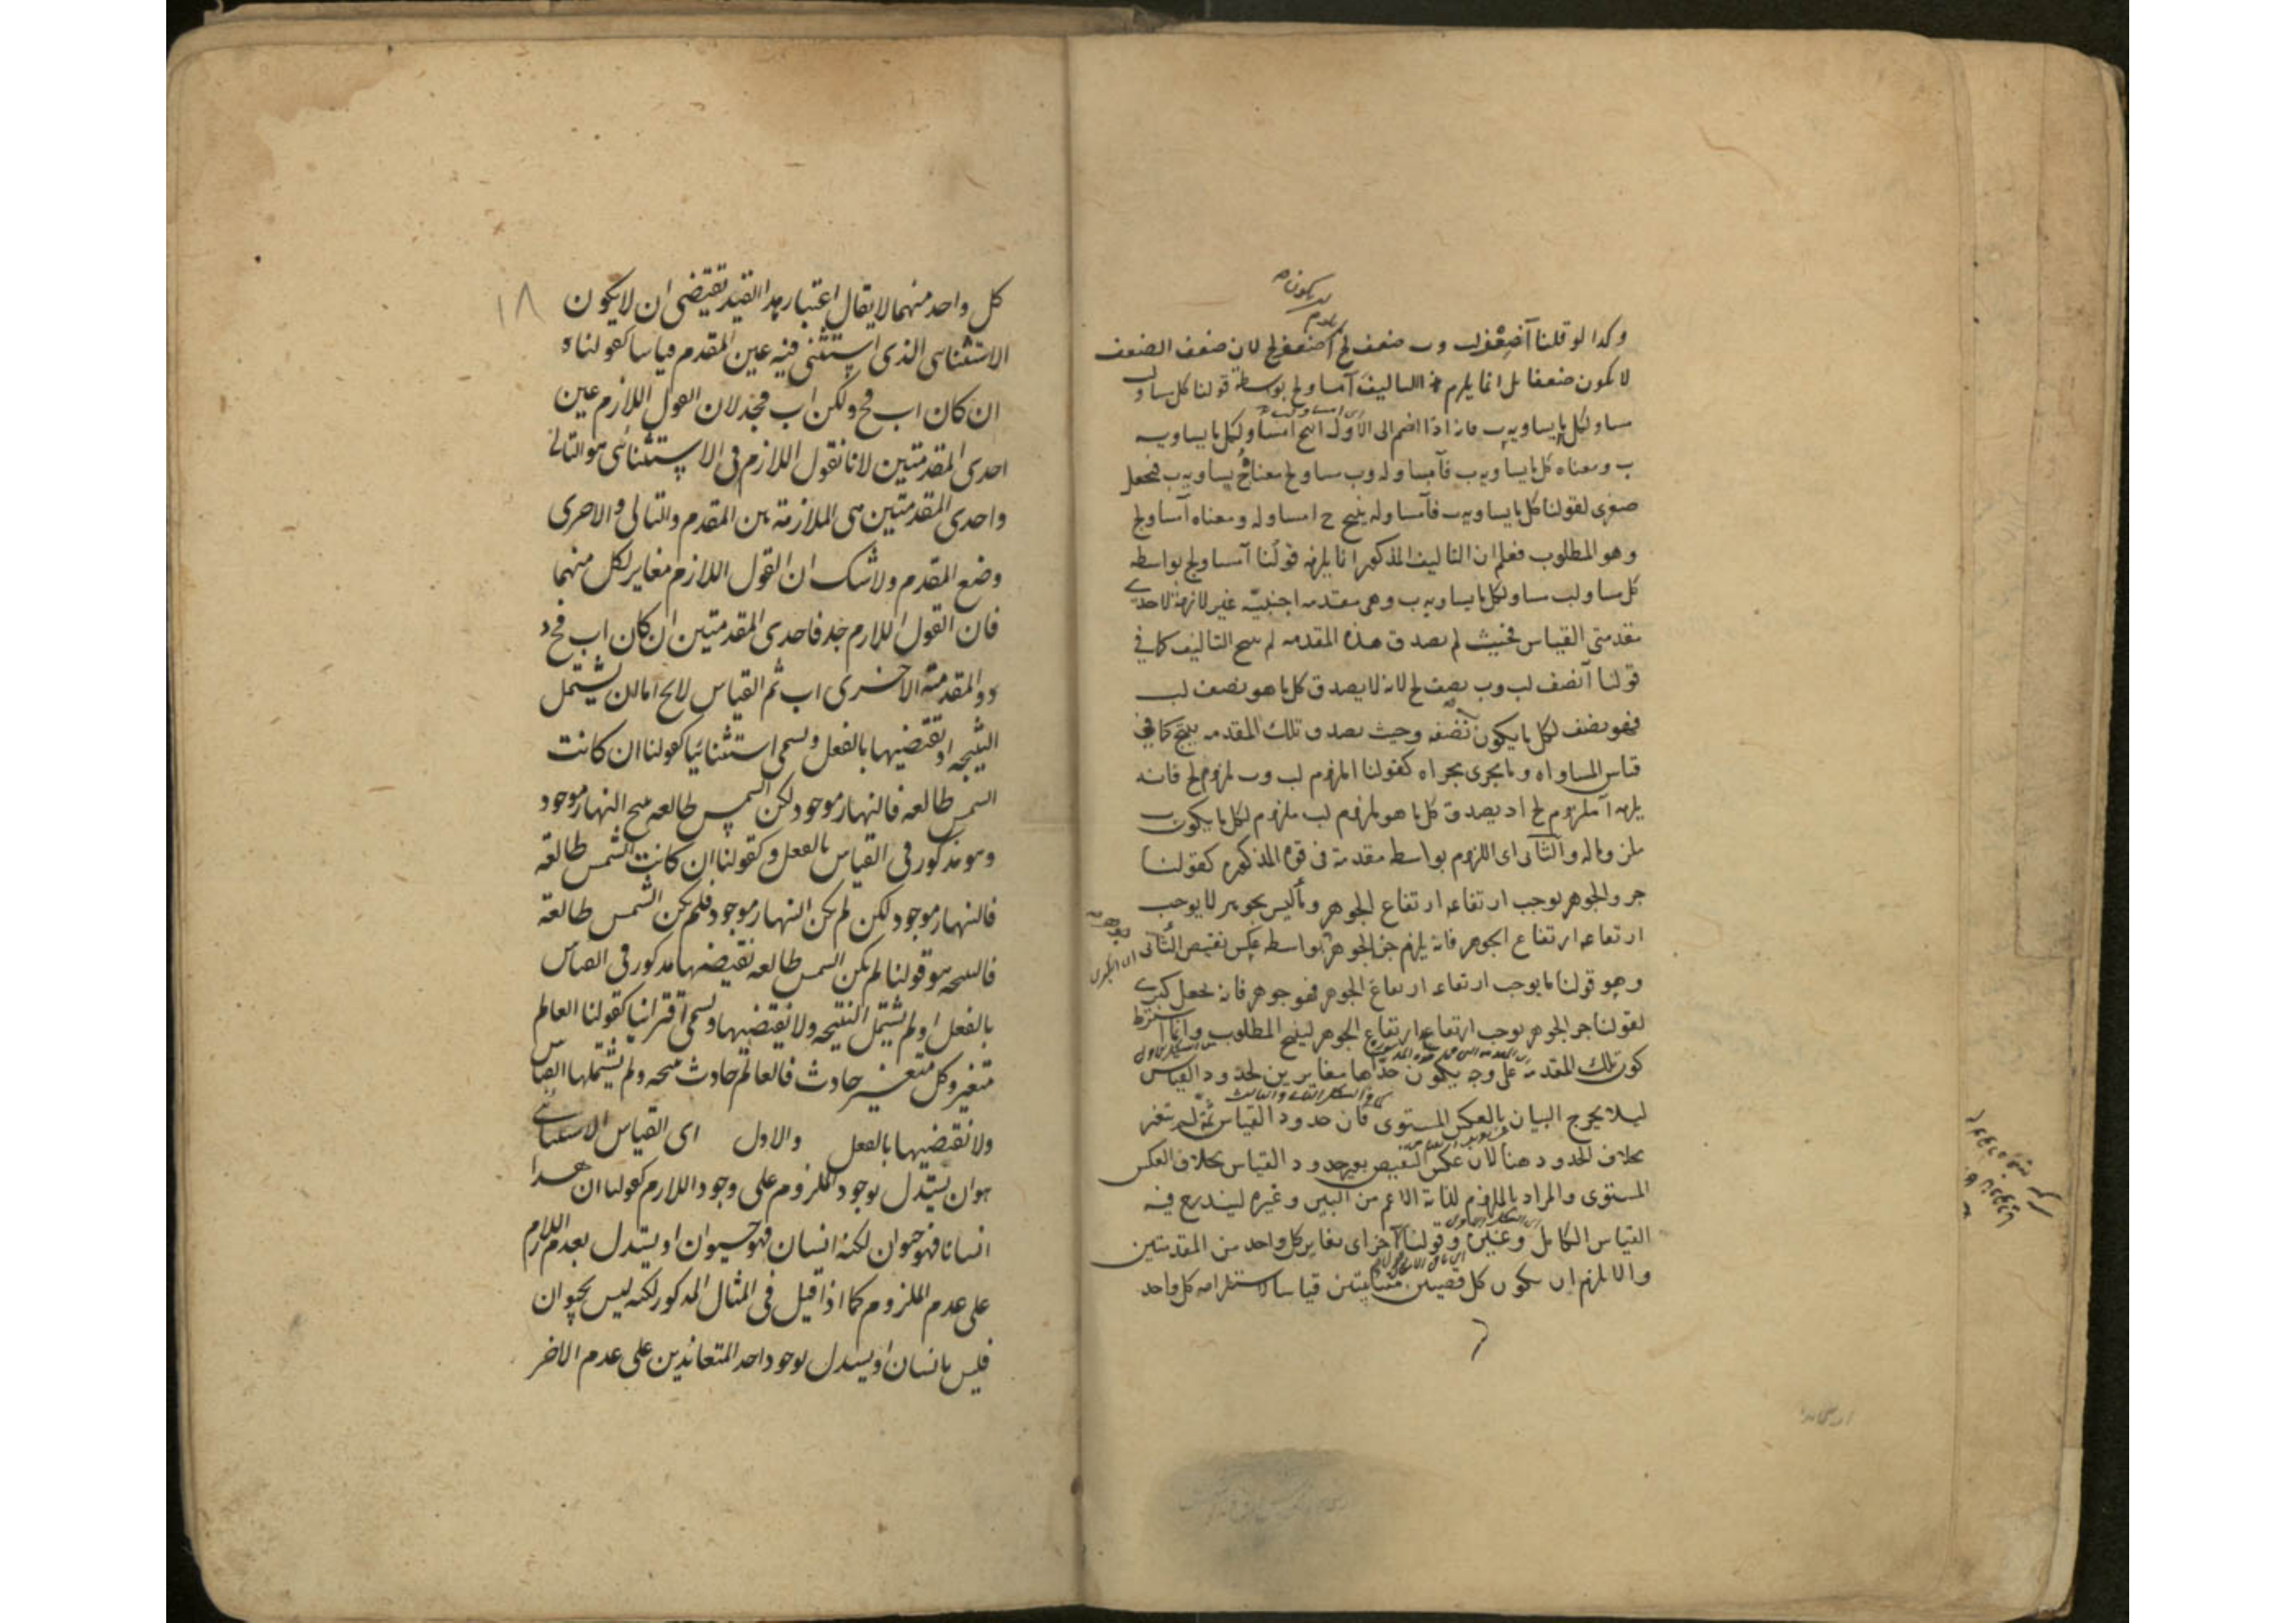 وكذا لو قلنا آ ضعف لب وب ضعف لج لم يلزم آ ضعف لج لان ضعف الضعف
لا يكون ضعفا بل انما يلزم هذا التاليف آ مساو لج بوسطة قولنا كل مساو لب
مساو لكل ما يساويه ب فانه اذا انضم الى الاول انتج آ مساو لكل ما يساويه
ب ومعناه كل ما يساويه ب فآ مساو له وب مساو لج معناه ج يساويه ب فتجعل
صغرى لقولنا كل ما يساويه ب فآ مساو له ينتج ج ا مساو له ومعناه آ مساو لج
وهو المطلوب فعلم ان التاليف المذكور انما يلزمه قولنا آ مساو لج بواسطة
كل مساو لب مساو لكل ما يساويه ب وهى مقدمه اجنبيّه غير لازمة لاحدى
مقدمتى القياس فحيث لم يصدق هذه المقدمه لم ينتج التاليف كما فى
قولنا آ نصف لب وب نصف لج لانه لا يصدق كل ما هو نصف لب
فهو نصف لكل ما يكون نصفه وحيث يصدق تلك المقدمه ينتج كما فى
قياس المساواه وما يجرى مجراه كقولنا ا ملزوم لب وب ملزوم لج فانه
يلزمه آ ملزوم لج اذ يصدق كل ما هو ملزوم لب ملزوم لكل ما يكون ب
ملزوما له والثانى اى اللزوم بواسطه مقدمة فى قوة المذكوره كقولنا
جزء الجوهر يوجب ارتفاعه ارتفاع الجوهر وما ليس بجوهر لا يوجب
ارتفاعه ارتفاع الجوهر فانه يلزم جزء الجوهر جوهر بواسطه عكس نقيض الثانى
وهو قولنا ما يوجب ارتفاعه ارتفاع الجوهر فهو جوهر فانه نجعل كبرى
لقولنا جزء الجوهر يوجب ارتفاعه ارتفاع الجوهر لينتج المطلوب وانما اشترط
كون تلك المقدمة على وجه يكون حداها مغايرين لحدود القياس
ليلا يخرج البيان بالعكس المستوى فان حدود القياس ثمة لم يتغير
بخلاف الحدود هنا لان عكس النقيض يغير حدود القياس بخلاف العكس
المستوى والمراد باللزوم لذاته الاعم من البين وغيره ليندرج فيه
القياس الكامل وغيره وقولنا آخر اى مغاير كل واحد من المقدمتين
والا لزم ان يكون كل قضيتين متباينتين قياسا لاستلزامه كل واحد
١٨
كل واحد منهما لا يقال اعتبار هذا القيد يقتضى ان لا يكون
الاستثناى الذى استثنى فيه عين المقدم قياسا كقولناه
ان كان اب فج د ولكن اب فجد لان القول اللازم عين
احدى المقدمتين لانا نقول اللازم فى الاستثنائى هو التالى
واحدى المقدمتين هى الملازمة بين المقدم والتالى والاخرى
وضع المقدم ولا شك ان القول اللازم مغاير لكل منهما
فان القول اللازم جد فاحدى المقدمتين ان كان اب فج د
والمقدمة الاخرى اب ثم القياس لا يخ اما ان يشتمل
النتيجه او نقيضيها بالفعل ويسمى استثنائيا كقولنا ان كانت
الشمس طالعه فالنهار موجود لكن الشمس طالعه ينتج النهار موجود
وهو مذكور فى القياس بالفعل وكقولنا ان كانت الشمس طالعة
فالنهار موجود لكن لم يكن النهار موجود فلم يكن الشمس طالعة
فالنتيجه هو قولنا لم يكن الشمس طالعه نقيضها مذكور فى القياس
بالفعل او لم يشتمل النتيجه ولا نقيضيها ويسمى اقترانيا كقولنا العالم
متغير وكل متغير حادث فالعالم حادث نتيجه ولم يشتملها القياس
ولا نقيضيها بالفعل والاول اى القياس الاستثنائى
هو ان يستدل بوجود الملزوم على وجود اللازم كقولنا ان هذا
انسانا فهو حيوان لكنه انسان فهو حيوان او يستدل بعدم اللازم
على عدم الملزوم كما اذا قيل فى المثال المذكور لكنه ليس بحيوان
فليس بانسان او يستدل بوجود احد المتعاندين على عدم الاخر